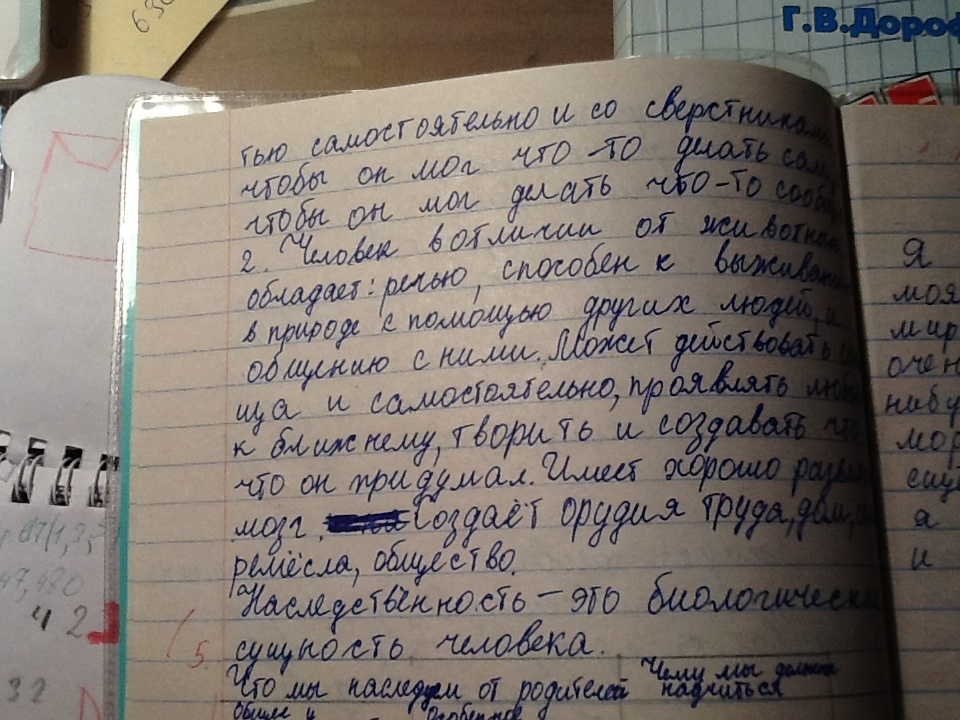 Г.В.Дороф
тью самостоятельно и со сверстниками
чтобы он мог что-то делать сам
чтобы он мог делать что-то сооб
2. Человек в отличии от животных
обладает: речью, способен к выживани
в природе с помощью других людей, и
общению с ними. Может действовать
ища и самостоятельно, проявлять любо
к ближнему, творить и создавать что
что он придумал. Имеет хорошо разви
мозг. Создаёт орудия труда, дом,
ремёсла, общество.
Наследственность – это биологическая
сущность человека.
5
Что мы наследуем от родителей
Чему мы должны
научиться
общее и
особенное
Я
моя
мир
очен
нибу
мор
сущ
а
и
47,480
42
32